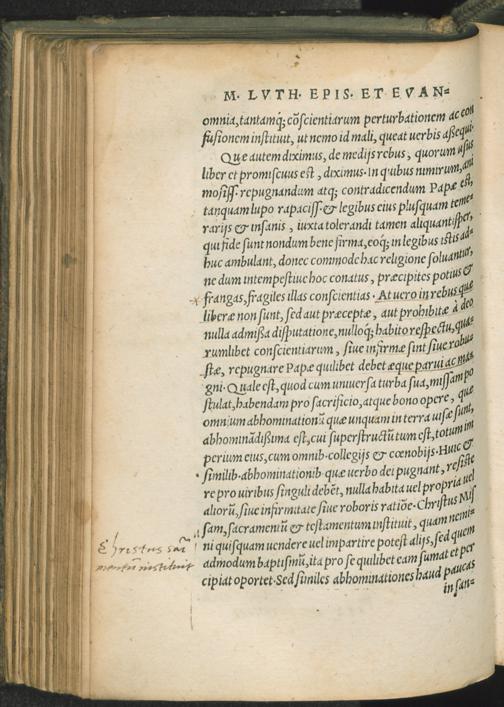 M. LVTH. EPIS. ET EVAN=
omnia, tantamq; cōscientiarum perturbationem ac con
fusionem instituit, ut nemo id mali, queat uerbis assequi.
Quæ autem diximus, de medijs rebus, quorum usus
liber et promiscuus est, diximus. In quibus nimirum, ani
mosiss. repugnandum atq; contradicendum Papæ est,
tanquam lupo rapaciss. & legibus eius plusquam teme=
rarijs & insanis, iuxta tolerandi tamen aliquantisper,
qui fide sunt nondum bene firma, eoq; in legibus istis ad=
huc ambulant, donec commode hac religione soluantur,
ne dum intempestiue hoc conatus, præcipites potius &
frangas, fragiles illas conscientias. At uero in rebus quæ
liberæ non sunt, sed aut præceptæ, aut prohibitæ à deo
nulla admissa disputatione, nulloq; habito respectu, quæ
rumlibet conscientiarum, siue infirmæ sint siue robu=
stæ, repugnare Papæ quilibet debet æque parui ac ma=
gni. Quale est, quod cum uniuersa turba sua, missam po
stulat, habendam pro sacrificio, atque bono opere, quæ
omnium abhominationū quæ unquam in terra uisæ sunt,
abhominādissima est, cui superstructū tum est, totum im
perium eius, cum omnib. collegijs & cœnobijs. Huic &
similib. abhominationib. quæ uerbo dei pugnant, resiste
re pro uiribus singuli debēt, nulla habita uel propria uel
aliorū, siue infirmitate siue roboris ratiōe. Christus Mis
sam, sacramentū & testamentum instituit, quam nemi=
ni quisquam uendere uel impartire potest alijs, sed quem
admodum baptismū, ita pro se quilibet eam sumat et per
cipiat oportet. Sed similes abhominationes haud paucas
in san=
Christus sac̄
mentū instituit